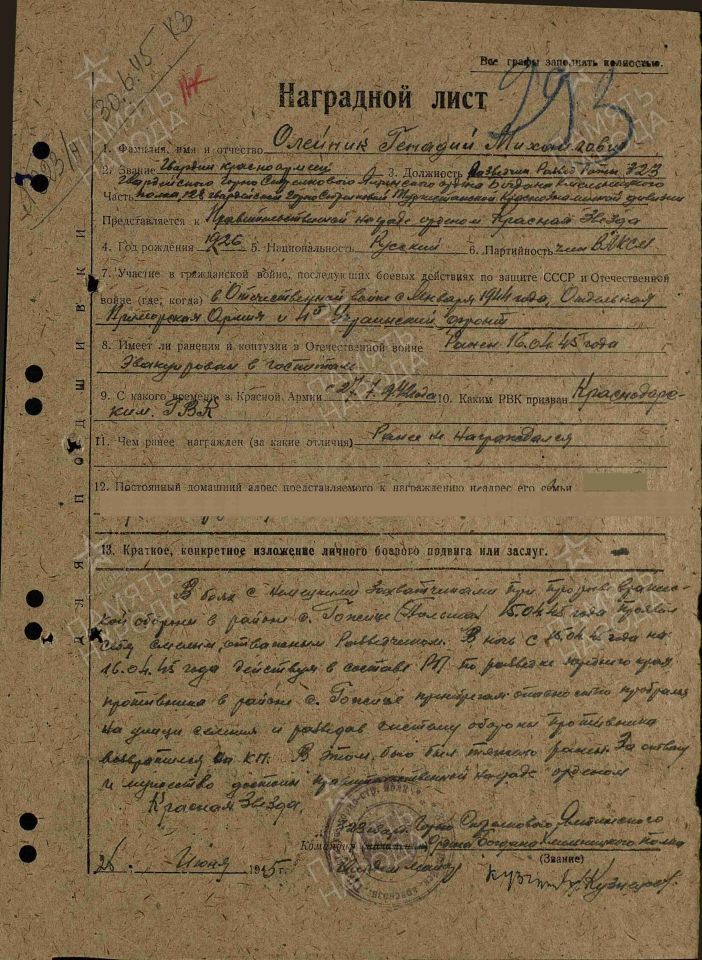 Все графы заполнять полностью.
30.6.45 КЗ
293
Наградной лист
1. Фамилия, имя и отчество Олейник Генадий Михайлович
2. Звание Гвардии красноармеец 3. Должность Разведчик Развед Роты 323
Гвардейского Горно Стрелкового ордена Богдана Хмельницкого
Часть полка, 128 гвардейской Горнострелковой Туркестанской Краснознаменной дивизии
Представляется к Правительственной награде орденом Красная Звезда
4. Год рождения 1926 5. Национальность Русский 6. Партийность член ВЛКСМ
7. Участие в гражданской войне, последующих боевых действиях по защите СССР и Отечественной
войне (где, когда) в Отечественной войне с Января 1944 года, Отдельная
Приморская Армия и 4й Украинский фронт
8. Имеет ли ранения и контузии в Отечественной войне Ранен 16.04.45 года
Эвакуирован в госпиталь
9. С какого времени в Красной Армии 10. Каким РВК призван Краснодарс-
ким ГВК
11. Чем ранее награжден (за какие отличия) Ранее не награждался
12. Постоянный домашний адрес представляемого к награждению и адрес его семьи
13. Краткое, конкретное изложение личного боевого подвига или заслуг.
В боях с немецкими захватчиками при прорыве вражес-
кой обороны в районе с. (Польша) 15.04.45 года проявил
себя смелым, отважным Разведчиком. В ночь с 15.04.45 года на
16.04.45 года действуя в составе РП по разведке переднего края
противника в районе с. пренебрегая опасностью пробрался
на улицы селения и разведав систему обороны противника
возвратился на КП. В этом бою был тяжело ранен. За отвагу
и мужество достоин правительственной награде орденом
Красная Звезда.
323 гвард. Горно Стрелкового
Командир ордена Богдана Хмельницкого полка
(Звание)
Гвардии майор Кузнецов
Июня 1945 г.
ДЛЯ ПОДШИВКИ
ПАМЯТЬ НАРОДА